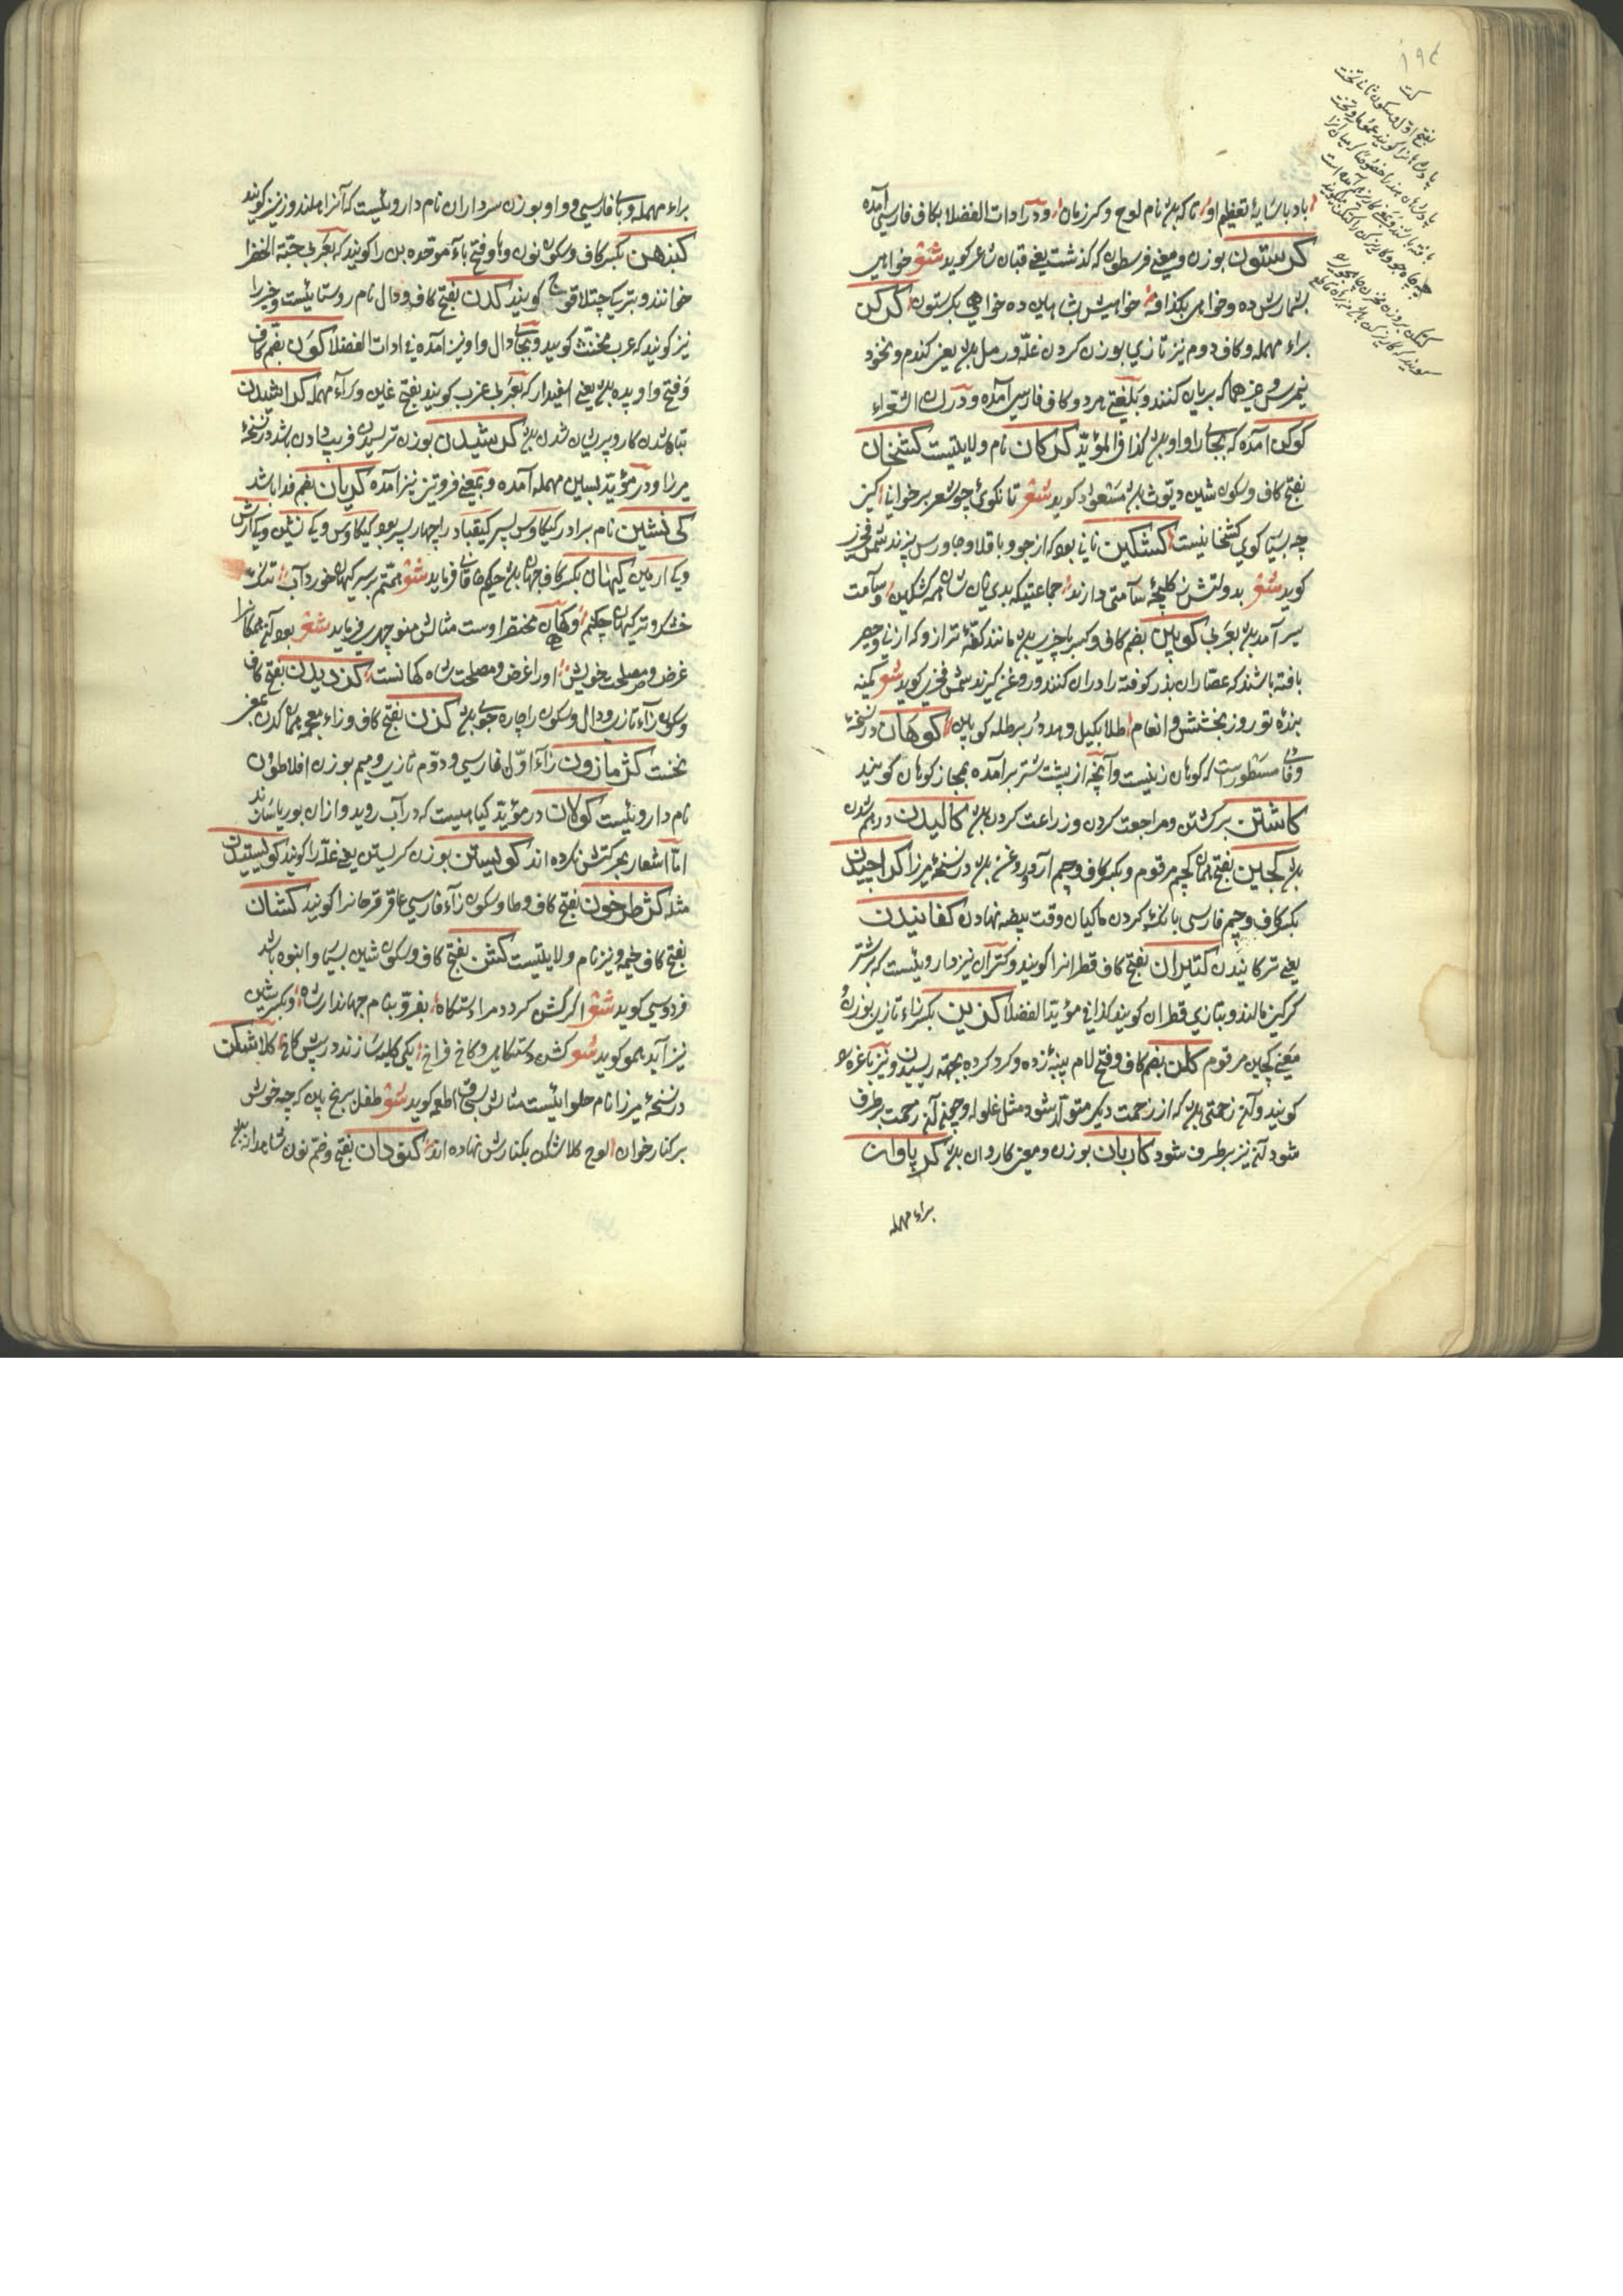 ۱۹۴
کت
باد با سایهٔ تعظیم او تا که باشد نام لوح و کرزمان و در ادات الفضلا بکاف فارسی آمده
کرستون بوزن و معنی فرسطون که گذشت یعنی قبان شاعر کوید شعر خواهی
بشمارش ده و خواهی بکزافه خواهیش بشاهین ده خواهی بکرستون کرکن
براء مهمله و کاف دوم نیز تازی بوزن کردن غلّه و رمل باشد یعنی کندم و نخود
نیمرس و غیرهما که بریان کنند و بلغتی هر دو کاف فارسی آمده و در الشعراء
کوکن آمده که بجای را واو باشد کذا فی المؤیّد کرکان نام ولایتیست کشخان
بفتح کاف و سکون شین دیّوث باشد مسعود کوید شعر تا نکوئی چو شعر برخوانی کیز
چه بسیار کوی کشخانیست کشکین نانی بود که از جو و باقلا و جاورس پزند شمس فخری
کوید شعر بدولتش کلیچهٔ سآمتی دارند جماعتیکه بدی نان شان همه کشکین و سآمت
سیر آمدن باشد بعربی کوپین بضم کاف و کسر باء پارسی باشد مانند کفّهٔ ترازو که از نی و حصیر
بافته باشند که عصّاران بذر کوفته را در آن کنند و روغن کیرند شمس فخری کوید شعر کمینه
بندهٔ تو روز بخشش و انعام طلا بکیل دهد در برطله کوپین کوهان در نسخهٔ
وفائی مسطور است که کوهان زینیست و آنچه از پشت شتر برآمده بمجاز کوهان گویند
کاشتن برکشتن و مراجعت کردن و زراعت کردن باشد کالیدن درهم شدن
باشد کجین بفتح همان کجیم مرقوم و بکسر کاف و جیم آرد و روغن باشد در نسخهٔ میرزا کراجیدن
بکسر کاف و جیم فارسی بانک کردن ماکیان وقت بیضه نهادن کفانیدن
یعنی ترکانیدن کتیران بفتح کاف قطرانرا کویند و کتران نیز دارویئست که بر شتر
کرکین مالند و بتازی قطران کویند کذا فی مؤید الفضلا کزین بکسر زاء تازی بوزن و
معنی کجین مرقوم کلن بضم کاف و فتح لام پنبهٔ زده و کرد کرده بجهته ریسیدن و نیز باغره را
کویند و آن زحمتی باشد که از زحمت دیکر متولّد شود مثل غلوله و چون آن زحمت برطرف
شود آن نیز برطرف شود کاربان بوزن و معنی کاروان باشد کرپاوان
براء مهمله
براء مهمله و باء فارسی و واو بوزن سرداران نام دارویئست که آنرا هلندوز نیز کویند
کنبدهن بکسر کاف و سکون نون و ها و فتح باء موحّده بن را کویند که بعربی حبّة الخضرا
خوانند و بترکی چتلاقوج کویند کدن بفتح کاف و دال نام روستایئست و حیز را
نیز کویند که عرب مخنّث کویند و بجای دال واو نیز آمده فی ادات الفضلا کون بضم کاف
و فتح واو پده باشد یعنی اسفیدار که بعربی غرب کویند بفتح غین و راء مهمله کراشیدن
تباه شدن کار و پریشان شدن باشد کرشیدن بوزن ترسیدن فریب دادن باشد در نسخهٔ
میرزا و در مؤیّد بسین مهمله آمده و بمعنی فروتنی نیز آمده کریان بضم فدا باشد
کی نشین نام برادر کیکاوس پسر کیقباد را چهار پسر بود کیکاوس و کی نشین و کی آرش
و کی ارمین کیهان بکسر کاف جهان باشد حکیم خاقانی فرماید شعر همّتم بر سر کیهان خورد آب
خشک و تر کیهان چکنم و کهان مختصر اوست مثالش منوچهری فرماید شعر
غرض و مصلحت خویش او را غرض و مصلحت شاه کهانست کزدیدن بفتح کاف
و سکون زاء تازی و دال و سکون را چاره جوئی باشد کزن بفتح کاف و زاء معجمه همان کدن بمعنی
نخست کژمازون زاء اوّل فارسی و دوّم تازی و میم بوزن افلاطون
نام دارویئست کولان در مؤیّد کیاهیست که در آب روید و از آن بوریا سازند
امّا اشعار بحرکتش نکرده اند کولیستن بوزن کریستن یعنی غلّه را کویند کولیستیدن
مثله کژطرخون بفتح کاف و طا و سکون زاء فارسی عاقرقرحا را کویند کشان
بفتح کاف خیمه و نیز نام ولایتیست کشن بفتح کاف و سکون شین بسیار و انبوه باشد
فردوسی کوید شعر اگر کشن کردد مرا دستکاه بفرّ و بنام جهاندار شاه و بکسر شین
نیز آید همو کوید شعر کشن دستکاهی و کاخ فراخ یکی کلبه سازند در پیش کاخ کلاشکن
در نسخهٔ میرزا نام حلوایئست مثالش بسحق اطعمه کوید شعر طفل برنج بین که چه خوش
بر کنار خوان لوح کلاشکن بکنارش نهاده اند کنودان بفتح و ضم نون شاهدانه باشد